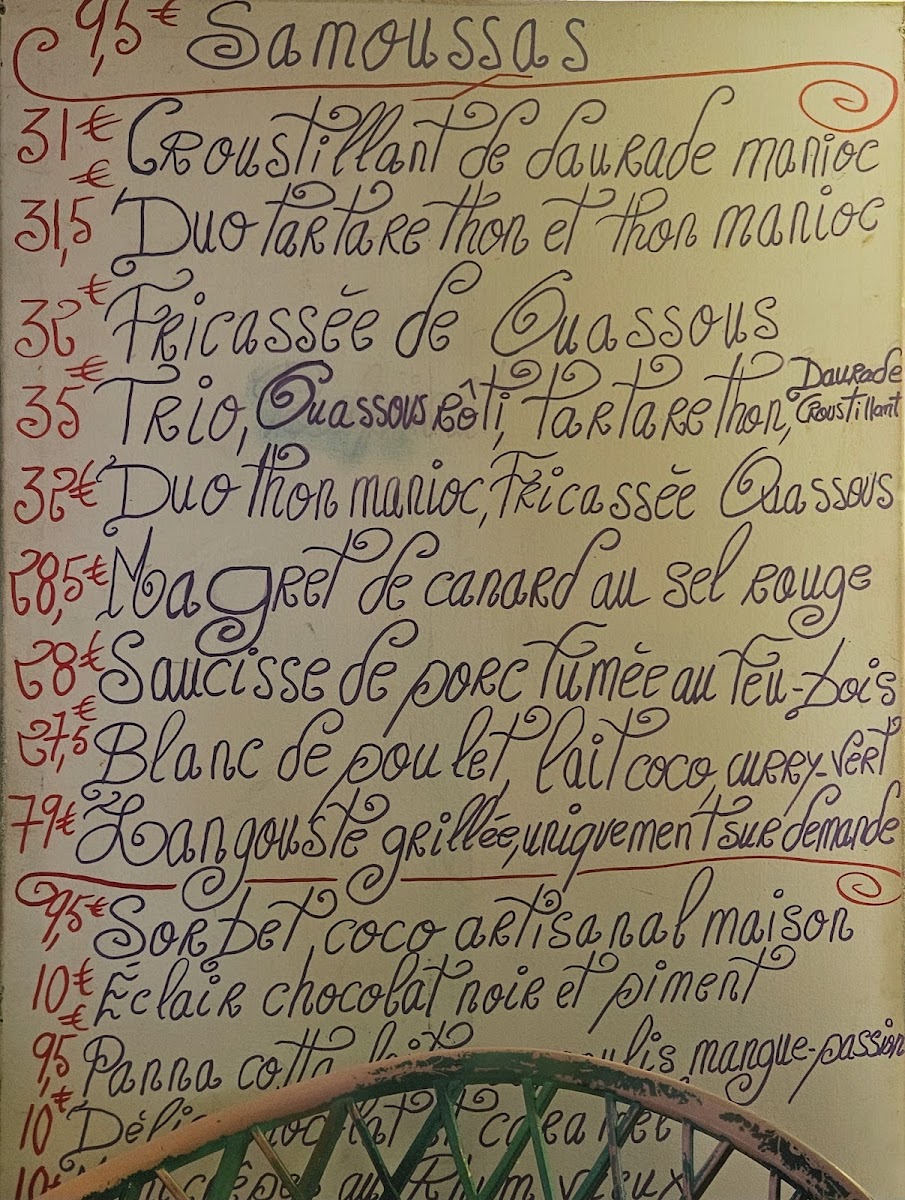 9,5€ Samoussas
31€ Croustillant de daurade manioc
31,5€ Duo tartare thon et thon manioc
32€ Fricassée de Ouassous
35€ Trio, Ouassous rôti, tartare thon, Daurade Croustillant
32€ Duo thon manioc, Fricassée Ouassous
28,5€ Magret de canard au sel rouge
28€ Saucisse de porc fumée au feu-bois
27,5€ Blanc de poulet, lait coco, curry-vert
79€ Langouste grillée, uniquement sur demande
9,5€ Sorbet, coco artisanal maison
10€ Éclair chocolat noir et piment
9,5€ Panna cotta mangue-passion
10€ et
10€ au Rhum vieux